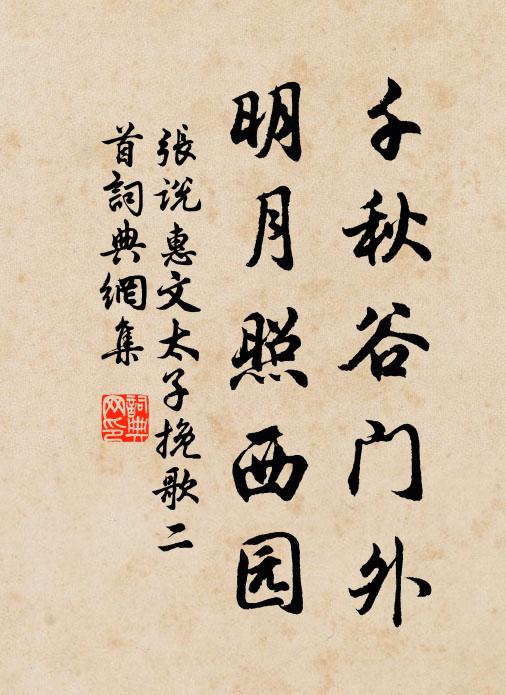 千秋谷门外
明月照西园
張说惠文太子挽歌二
首詞典網集
詞典
网印